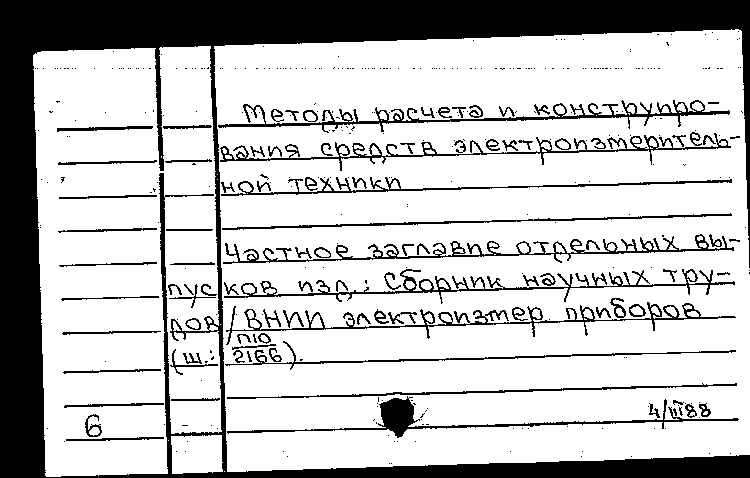 Методы расчета и конструиро-
вания средств электроизмеритель-
ной техники
Частное заглавие отдельных вы-
пусков изд.: Сборник научных тру-
дов / ВНИИ электроизмер приборов
(ш.: П10/2166).
6
4/III88